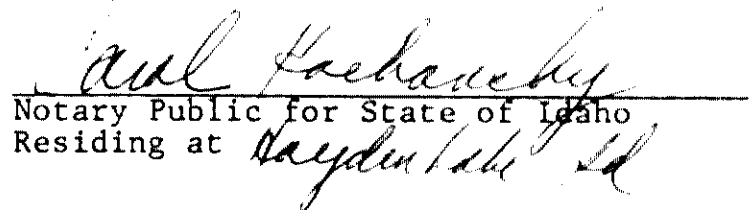 Carol Kochansky
Notary Public for State of Idaho
Residing at Hayden Lake Id